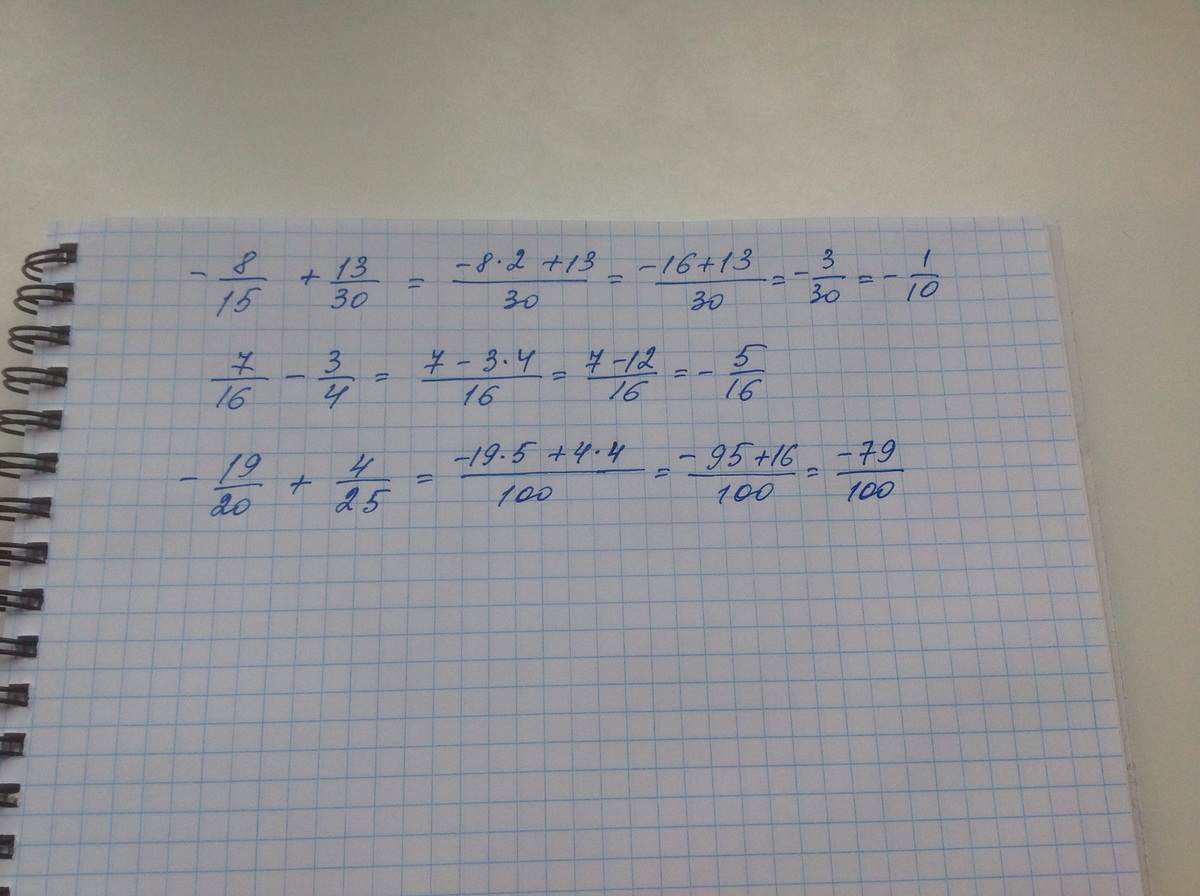 -8/15 + 13/30 = (-8·2 + 13)/30 = (-16+13)/30 = -3/30 = -1/10
7/16 - 3/4 = (7 - 3·4)/16 = (7-12)/16 = -5/16
-19/20 + 4/25 = (-19·5 + 4·4)/100 = (-95+16)/100 = -79/100